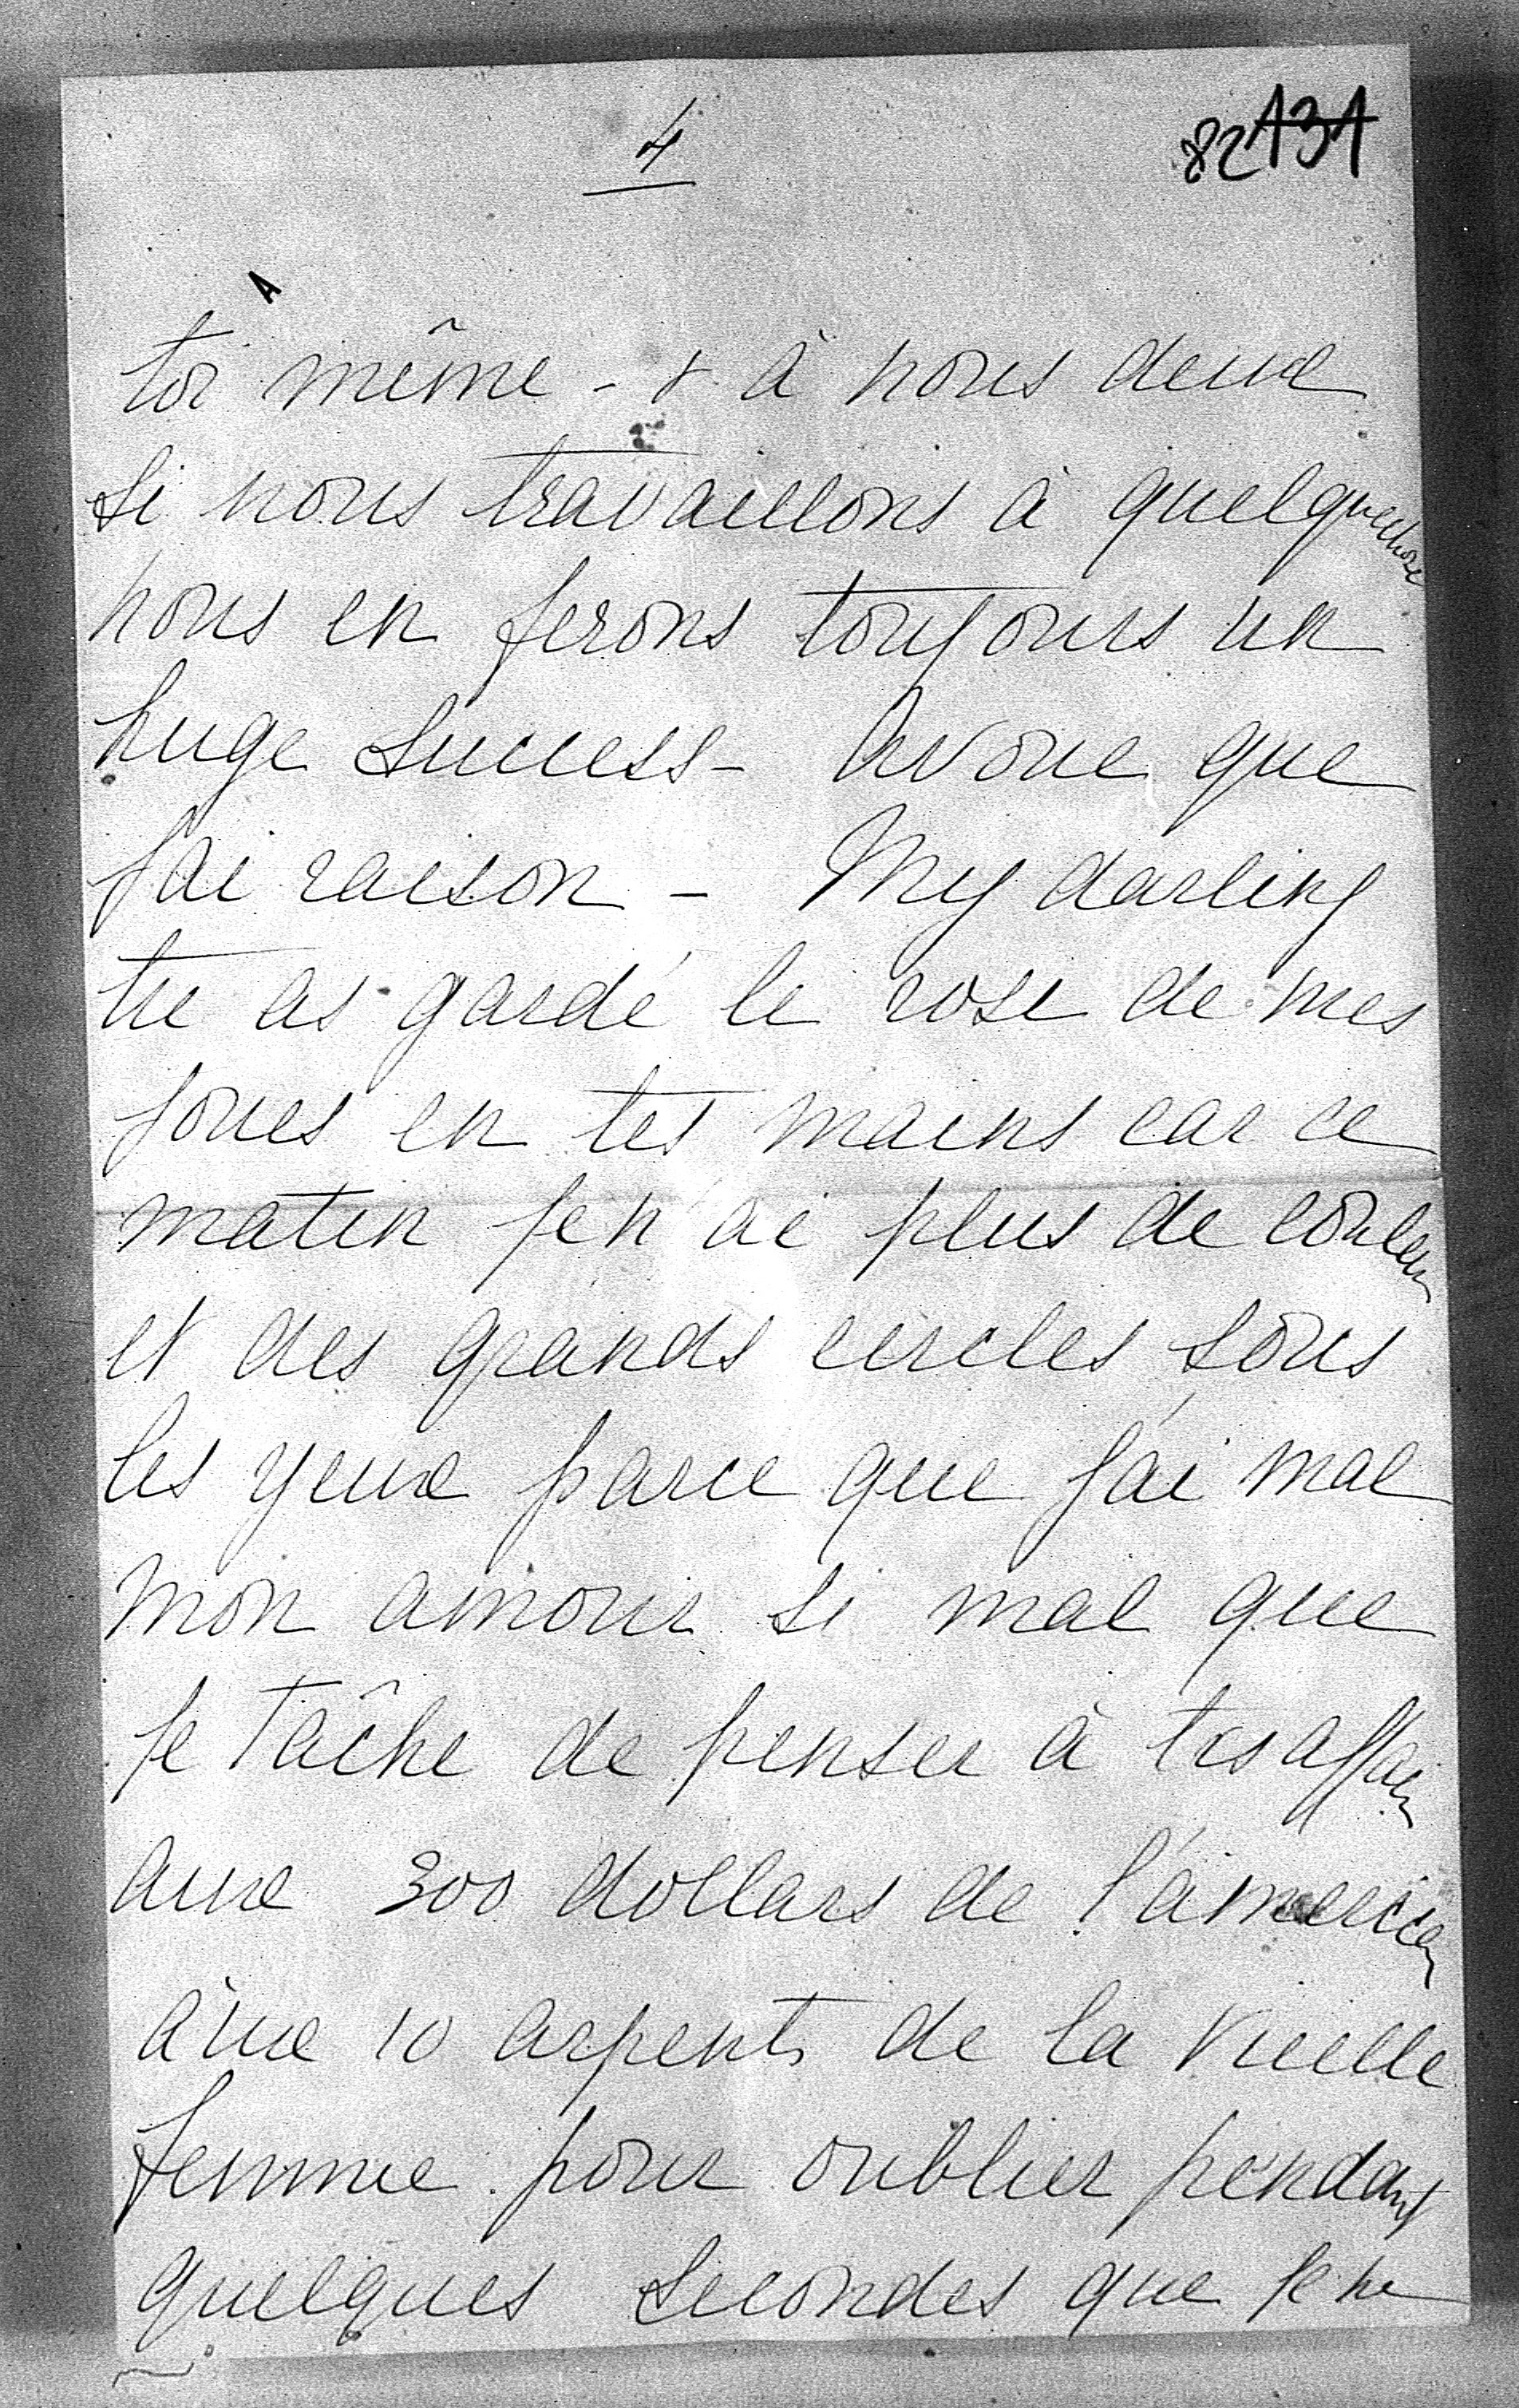 4
82 131
toi même - & à nous deux
si nous travaillons à quelque chose
nous en ferons toujours un
huge success - Avoue que
j'ai raison - My darling
tu as gardé le rose de mes
joues en tes mains car ce
matin je n'ai plus de couleur
et des grands circles sous
les yeux parce que j'ai mal
mon amour si mal que
je tâche de penser à tes affaires
aux 300 dollars de l'américain
aux 10 arpents de la vieille
femme pour oublier pendant
quelques secondes que je ne